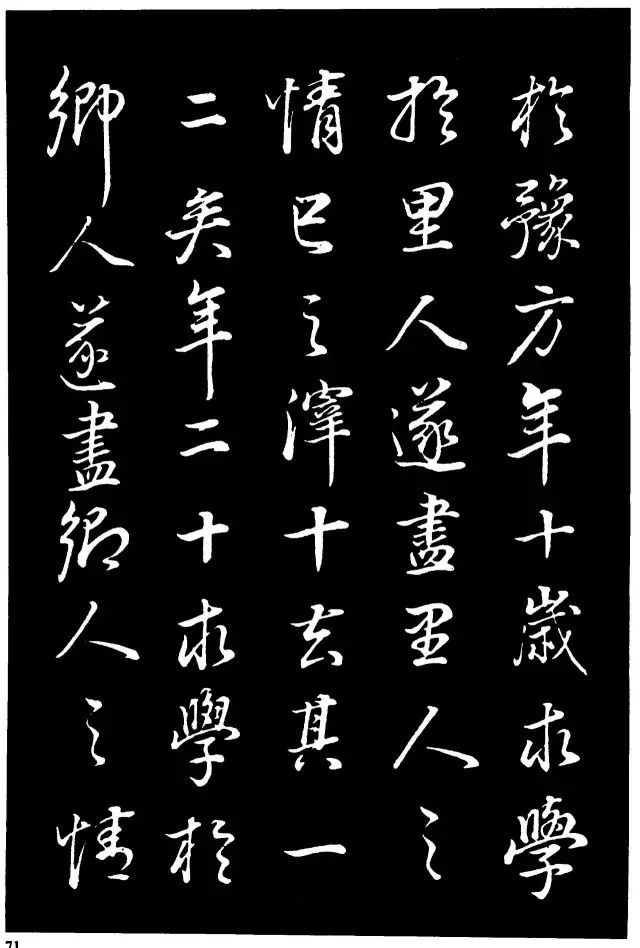 於豫方年十歲求學
於里人遂盡里人之
情已之滓十去其一
二矣年二十求學於
鄉人遂盡鄉人之情
71